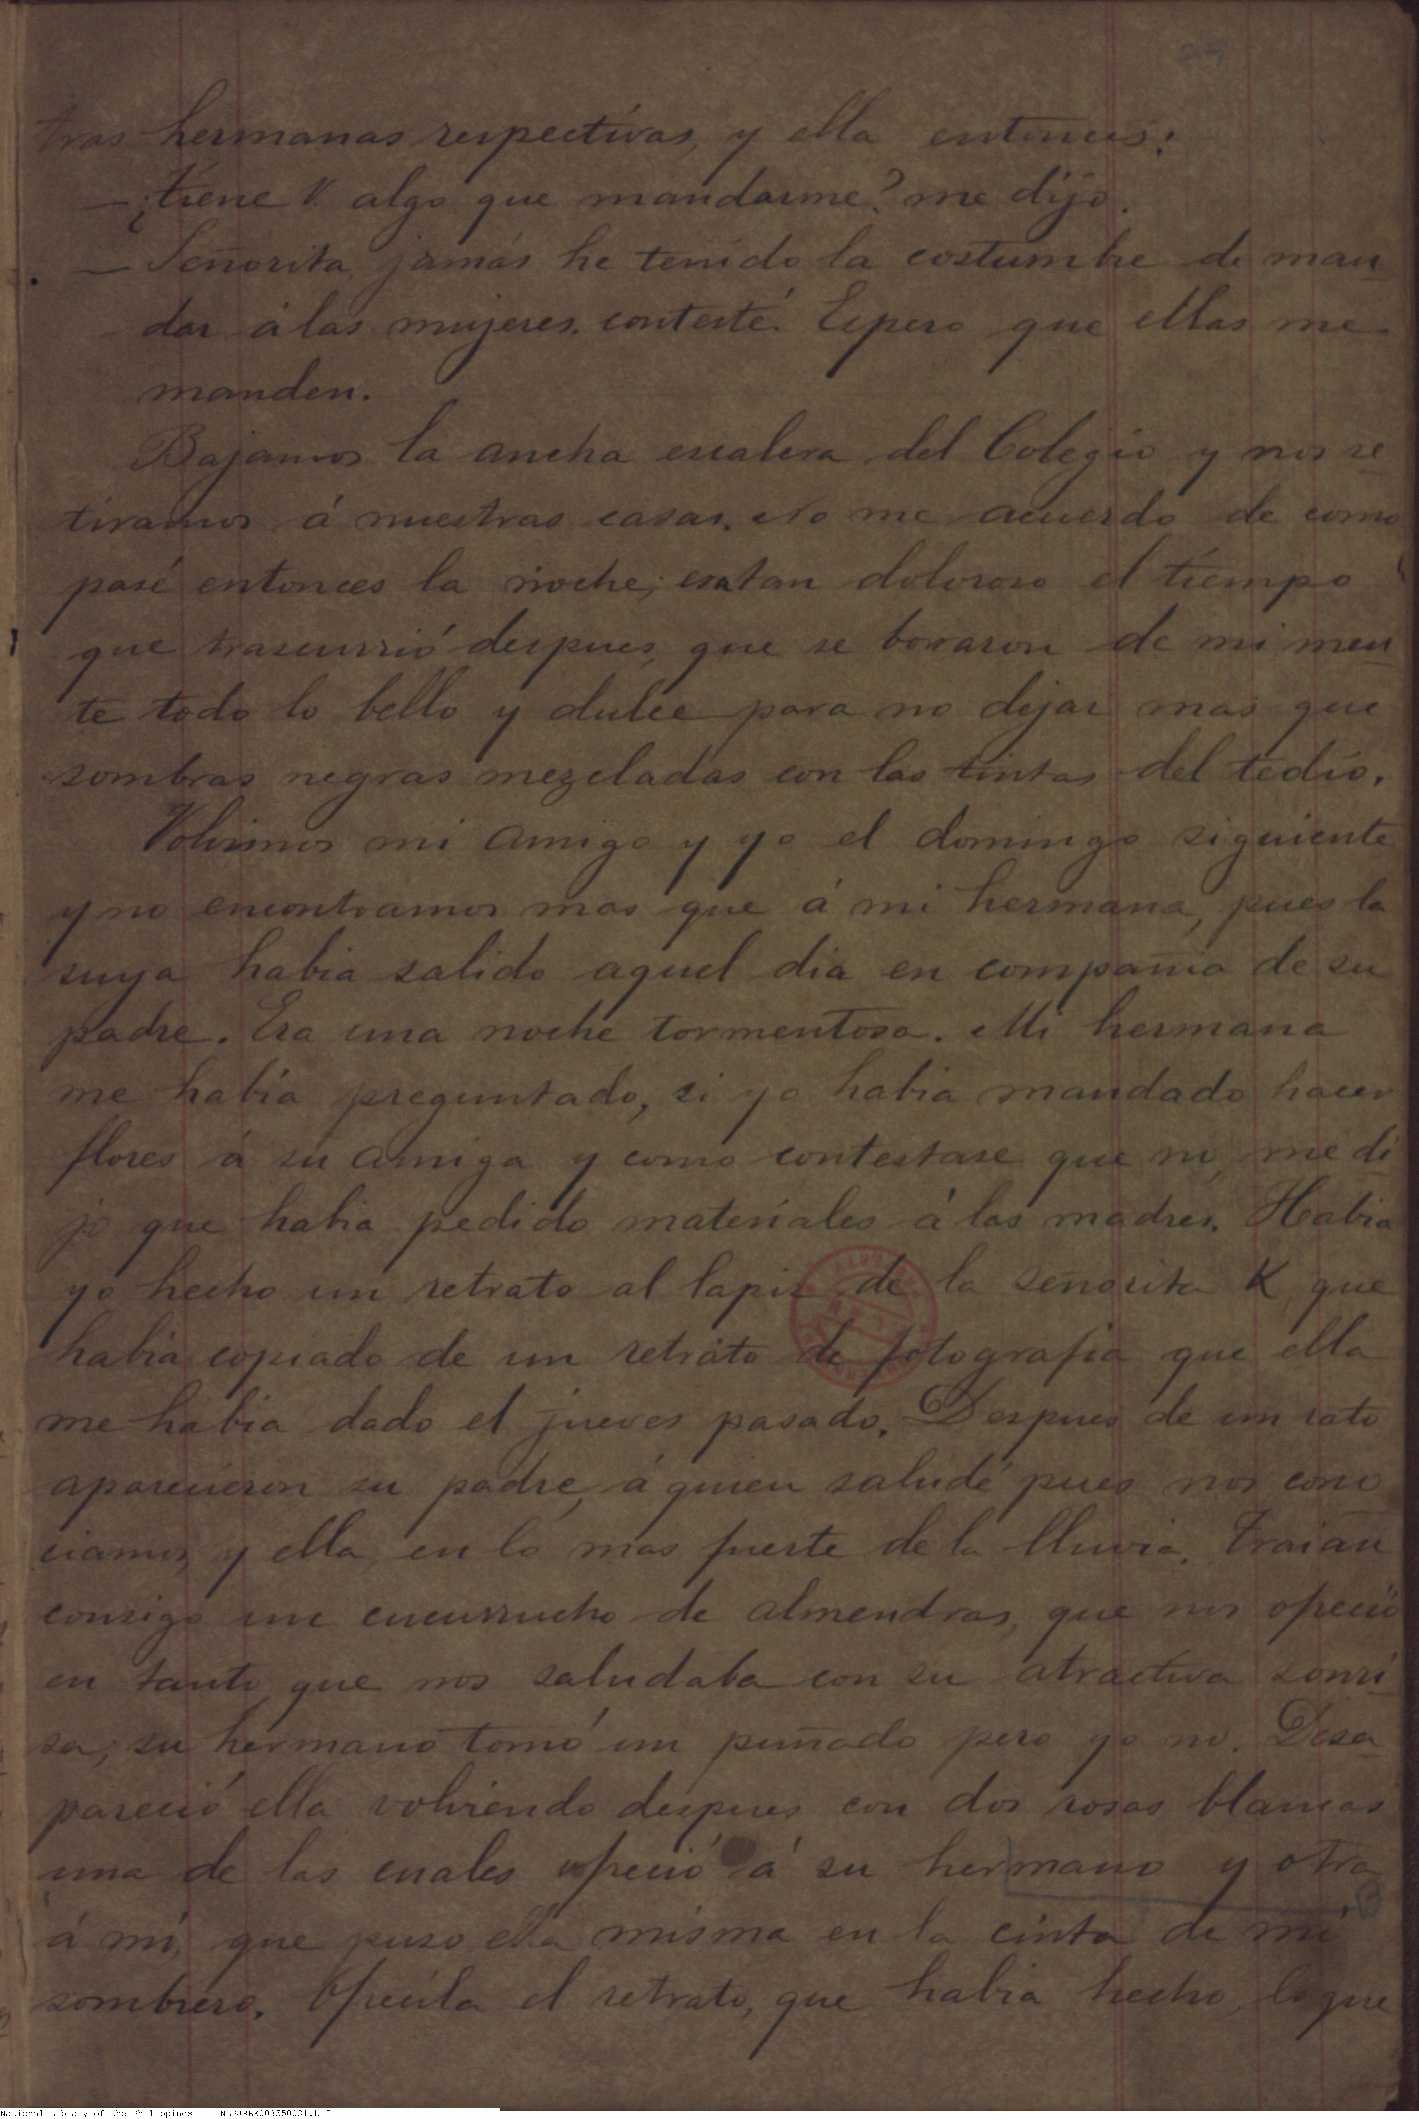 tras hermanas respectivas, y ella entonces:
— ¿tiene V. algo que mandarme? me dijo.
— Señorita, jamás he tenido la costumbre de man-
dar á las mujeres, contesté. Espero que ellas me
manden.
Bajamos la ancha escalera del Colegio y nos re-
tiramos á nuestras casas. No me acuerdo de como
pasé entonces la noche; era tan doloroso el tiempo
que trascurrió despues, que se borraron de mi men-
te todo lo bello y dulce para no dejar mas que
sombras negras mezcladas con las tintas del tedio.
Volvimos mi amigo y yo el domingo siguiente
y no encontramos mas que á mi hermana, pues la
suya habia salido aquel dia en compañia de su
padre. Era una noche tormentosa. Mi hermana
me habia preguntado, si yo habia mandado hacer
flores á su amiga y como contestase que no, me di-
jo que habia pedido materiales á las madres. Habia
yo hecho un retrato al lapiz de la señorita K, que
habia copiado de un retrato de fotografia que ella
me habia dado el jueves pasado. Despues de un rato
aparecieron su padre, á quien saludé pues nos cono-
ciamos, y ella, en lo mas fuerte de la lluvia. Traian
consigo un cucurrucho de almendras, que nos ofreció
en tanto que nos saludaba con su atractiva sonri-
sa; su hermano tomó un puñado pero yo no. Desa-
pareció ella volviendo despues con dos rosas blancas
una de las cuales ofreció á su hermano y otra
á mí, que puso ella misma en la cinta de mi
sombrero. Ofrecíla el retrato, que habia hecho, lo que
National Library of the Philippines